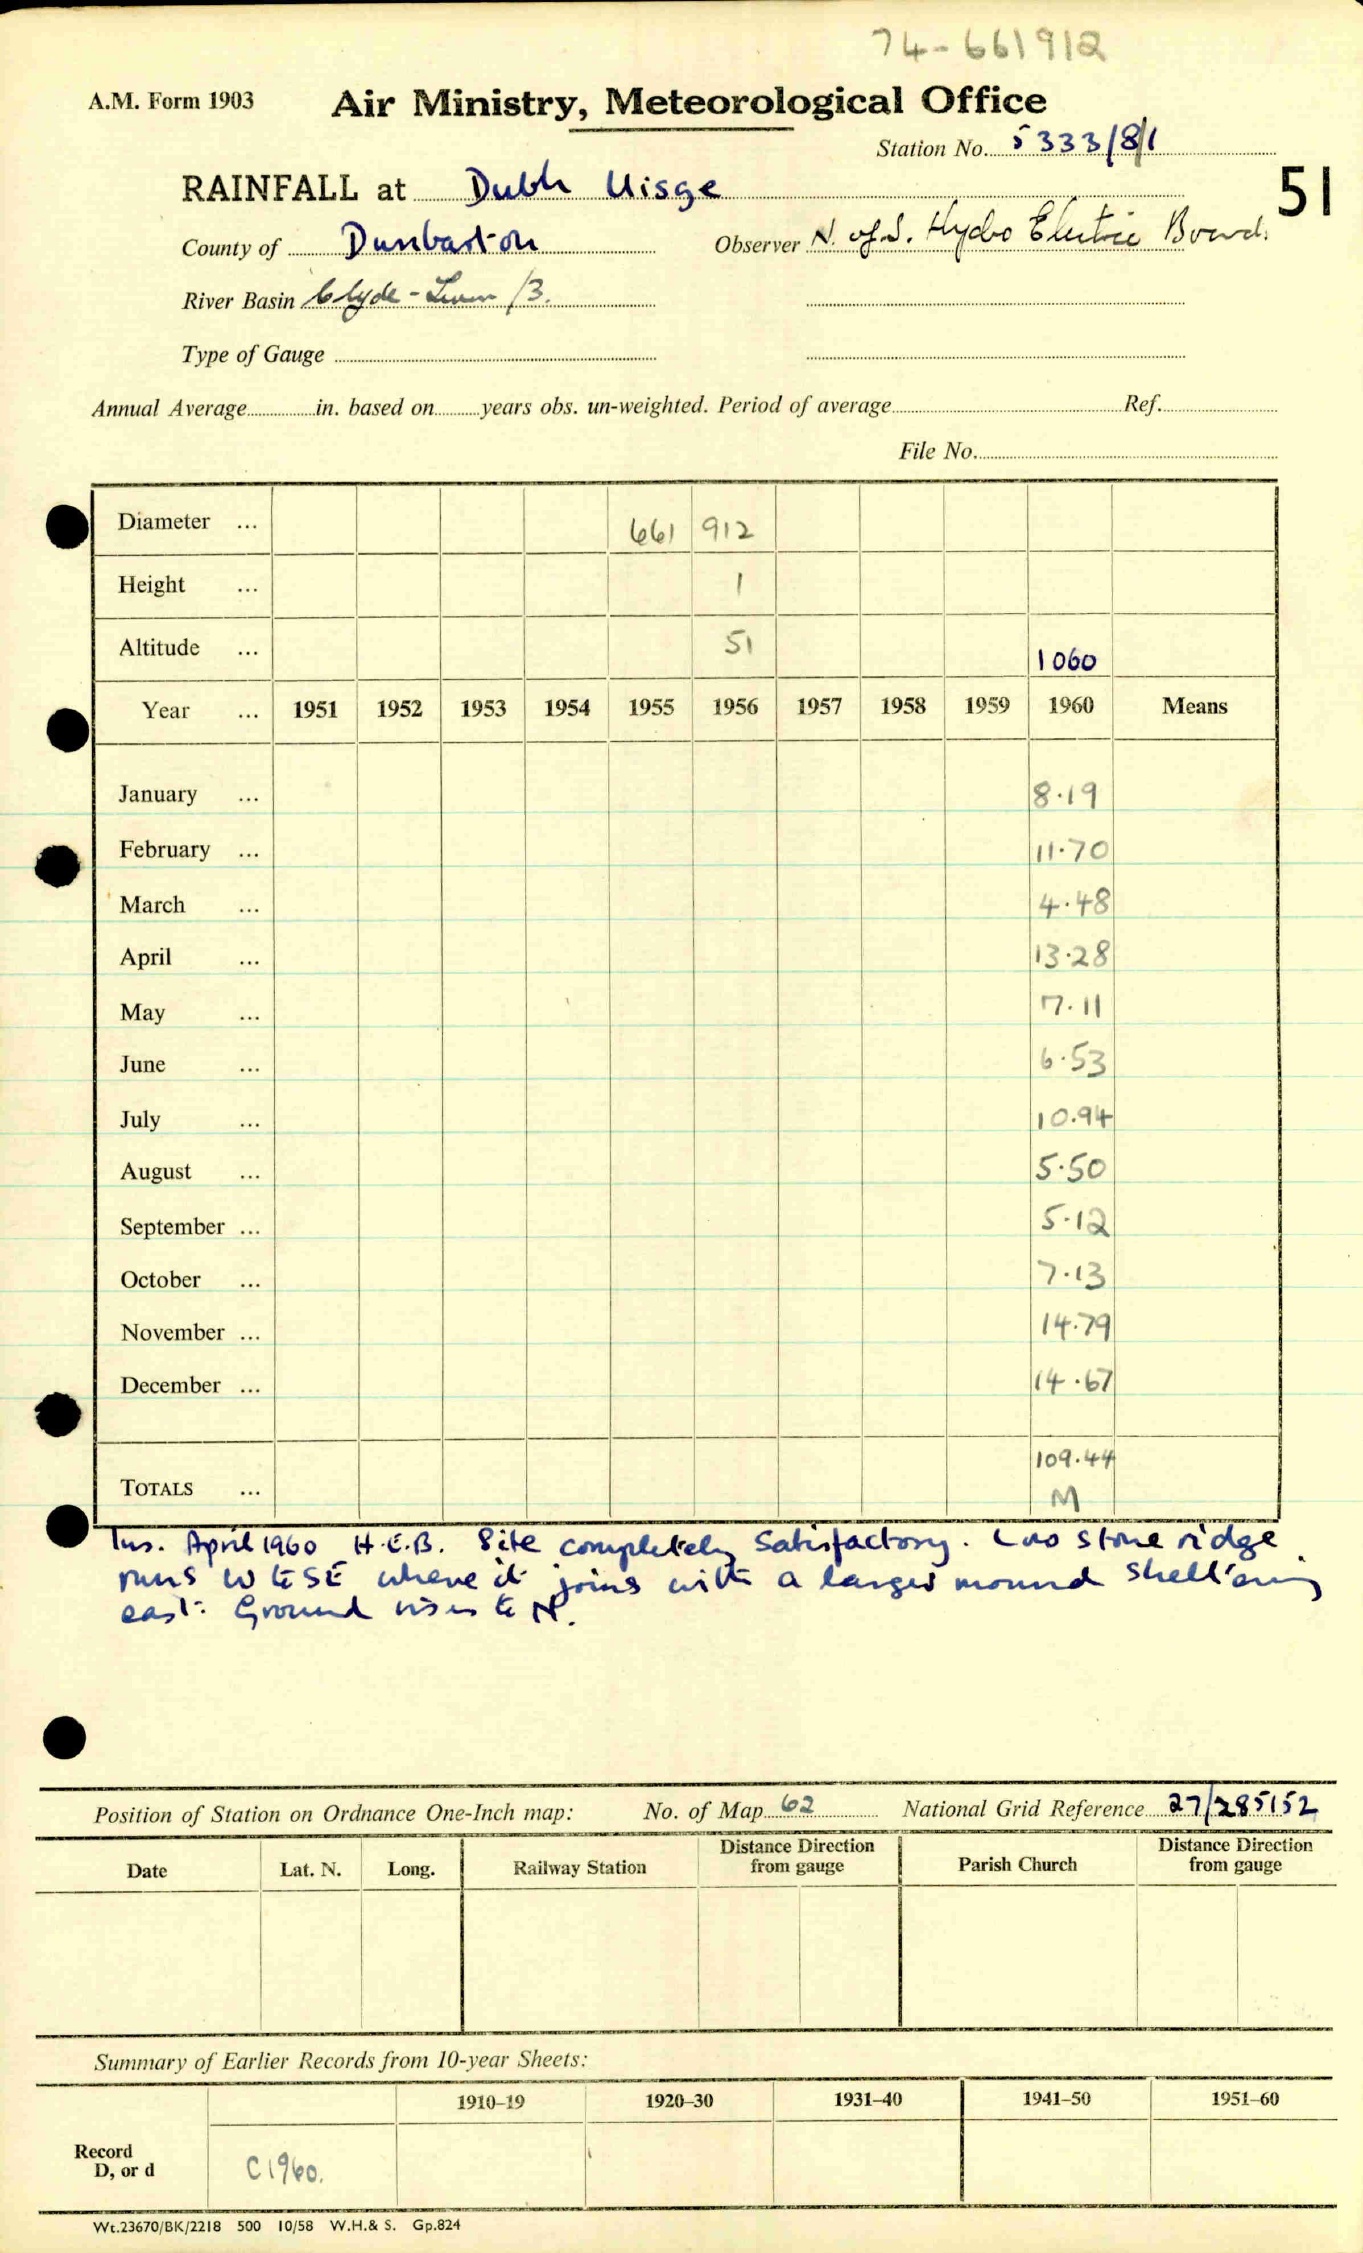 74-661912
A.M. Form 1903 Air Ministry, Meteorological Office
Station No. 5333/8/1
51
RAINFALL at Dubh Uisge
County of Dunbarton Observer N. of S. Hydro Electric Board.
River Basin Clyde-Leven /3.
Type of Gauge
Annual Average in. based on years obs. un-weighted. Period of average Ref.
File No.
Diameter ... 661 912
Height ... 1
Altitude ... 51 1060
Year ... 1951 1952 1953 1954 1955 1956 1957 1958 1959 1960 Means
January ... 8.19
February ... 11.70
March ... 4.48
April ... 13.28
May ... 7.11
June ... 6.53
July ... 10.94
August ... 5.50
September ... 5.12
October ... 7.13
November ... 14.79
December ... 14.67
109.44
TOTALS ... M
Ins. April 1960 H.E.B. Site completely satisfactory. Low stone ridge
runs W to SE where it joins with a larger mound shelt'ering
east. Ground rises to N.
Position of Station on Ordnance One-Inch map: No. of Map 62 National Grid Reference 27/285152
Date Lat. N. Long. Railway Station Distance Direction from gauge Parish Church Distance Direction from gauge
Summary of Earlier Records from 10-year Sheets:
1910–19 1920–30 1931–40 1941–50 1951–60
Record
D, or d C1960.
Wt.23670/BK/2218 500 10/58 W.H.& S. Gp.824